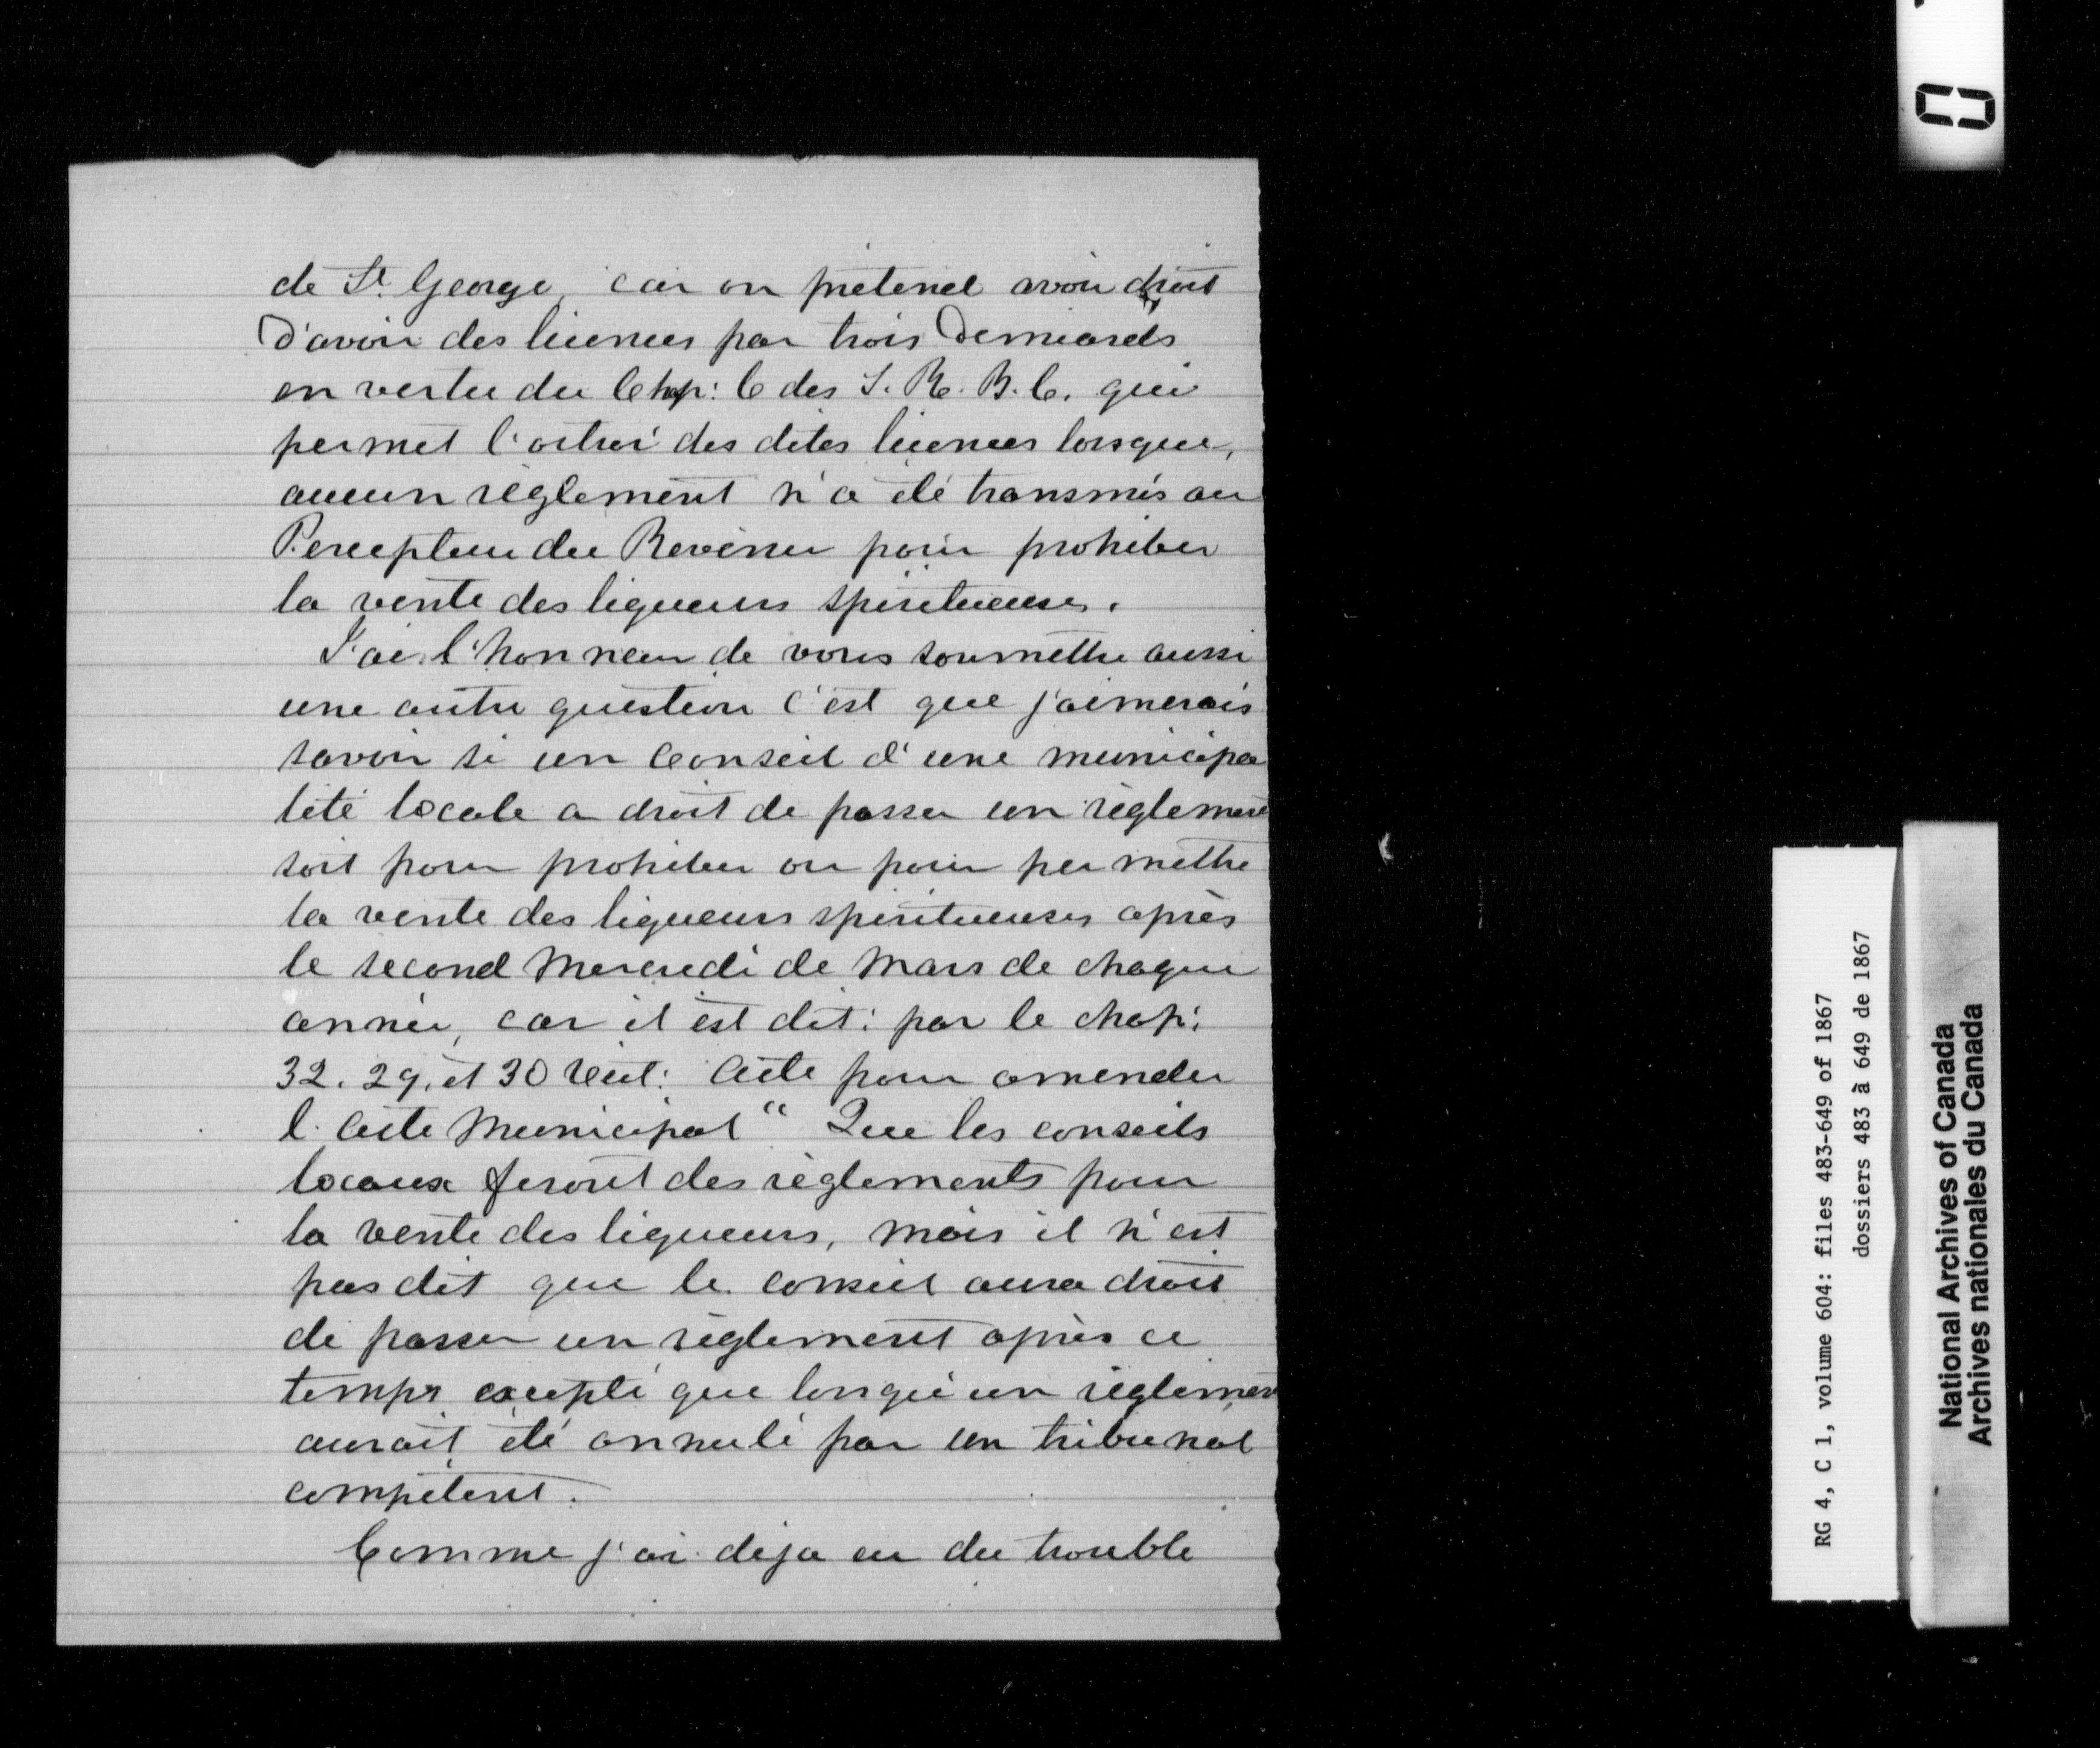 de St. George, car on prétend avoir droit
d'avoir des licences par trois demiards
en vertu du Chap: 6 des S. R. B. C. qui
permet l'octroi des dites licences lorsque,
aucun règlement n'a été transmis au
Percepteur du Revenu pour prohiber
la vente des liqueurs spiritueuses.
J'ai l'honneur de vous soumettre aussi
une autre question c'est que j'aimerais
savoir si un Conseil d'une municipa
lité locale a droit de passer un règlement
soit pour prohiber ou pour permettre
la vente des liqueurs spiritueuses après
le second Mercredi de Mars de chaque
année, car il est dit: par le chap:
32. 29, et 30 Vict: Acte pour amender
l'Acte Municipal " Que les conseils
locaux feront des règlements pour
la vente des liqueurs, mais il n'est
pas dit que le conseil aura droit
de passer un règlement après ce
temps excepté que lorsqu'un règlemen
aurait été annulé par un tribunal
compétent.
Comme j'ai déja eu du trouble
0
RG 4, C 1, volume 604: files 483-649 of 1867
dossiers 483 à 649 de 1867
National Archives of Canada
Archives nationales du Canada